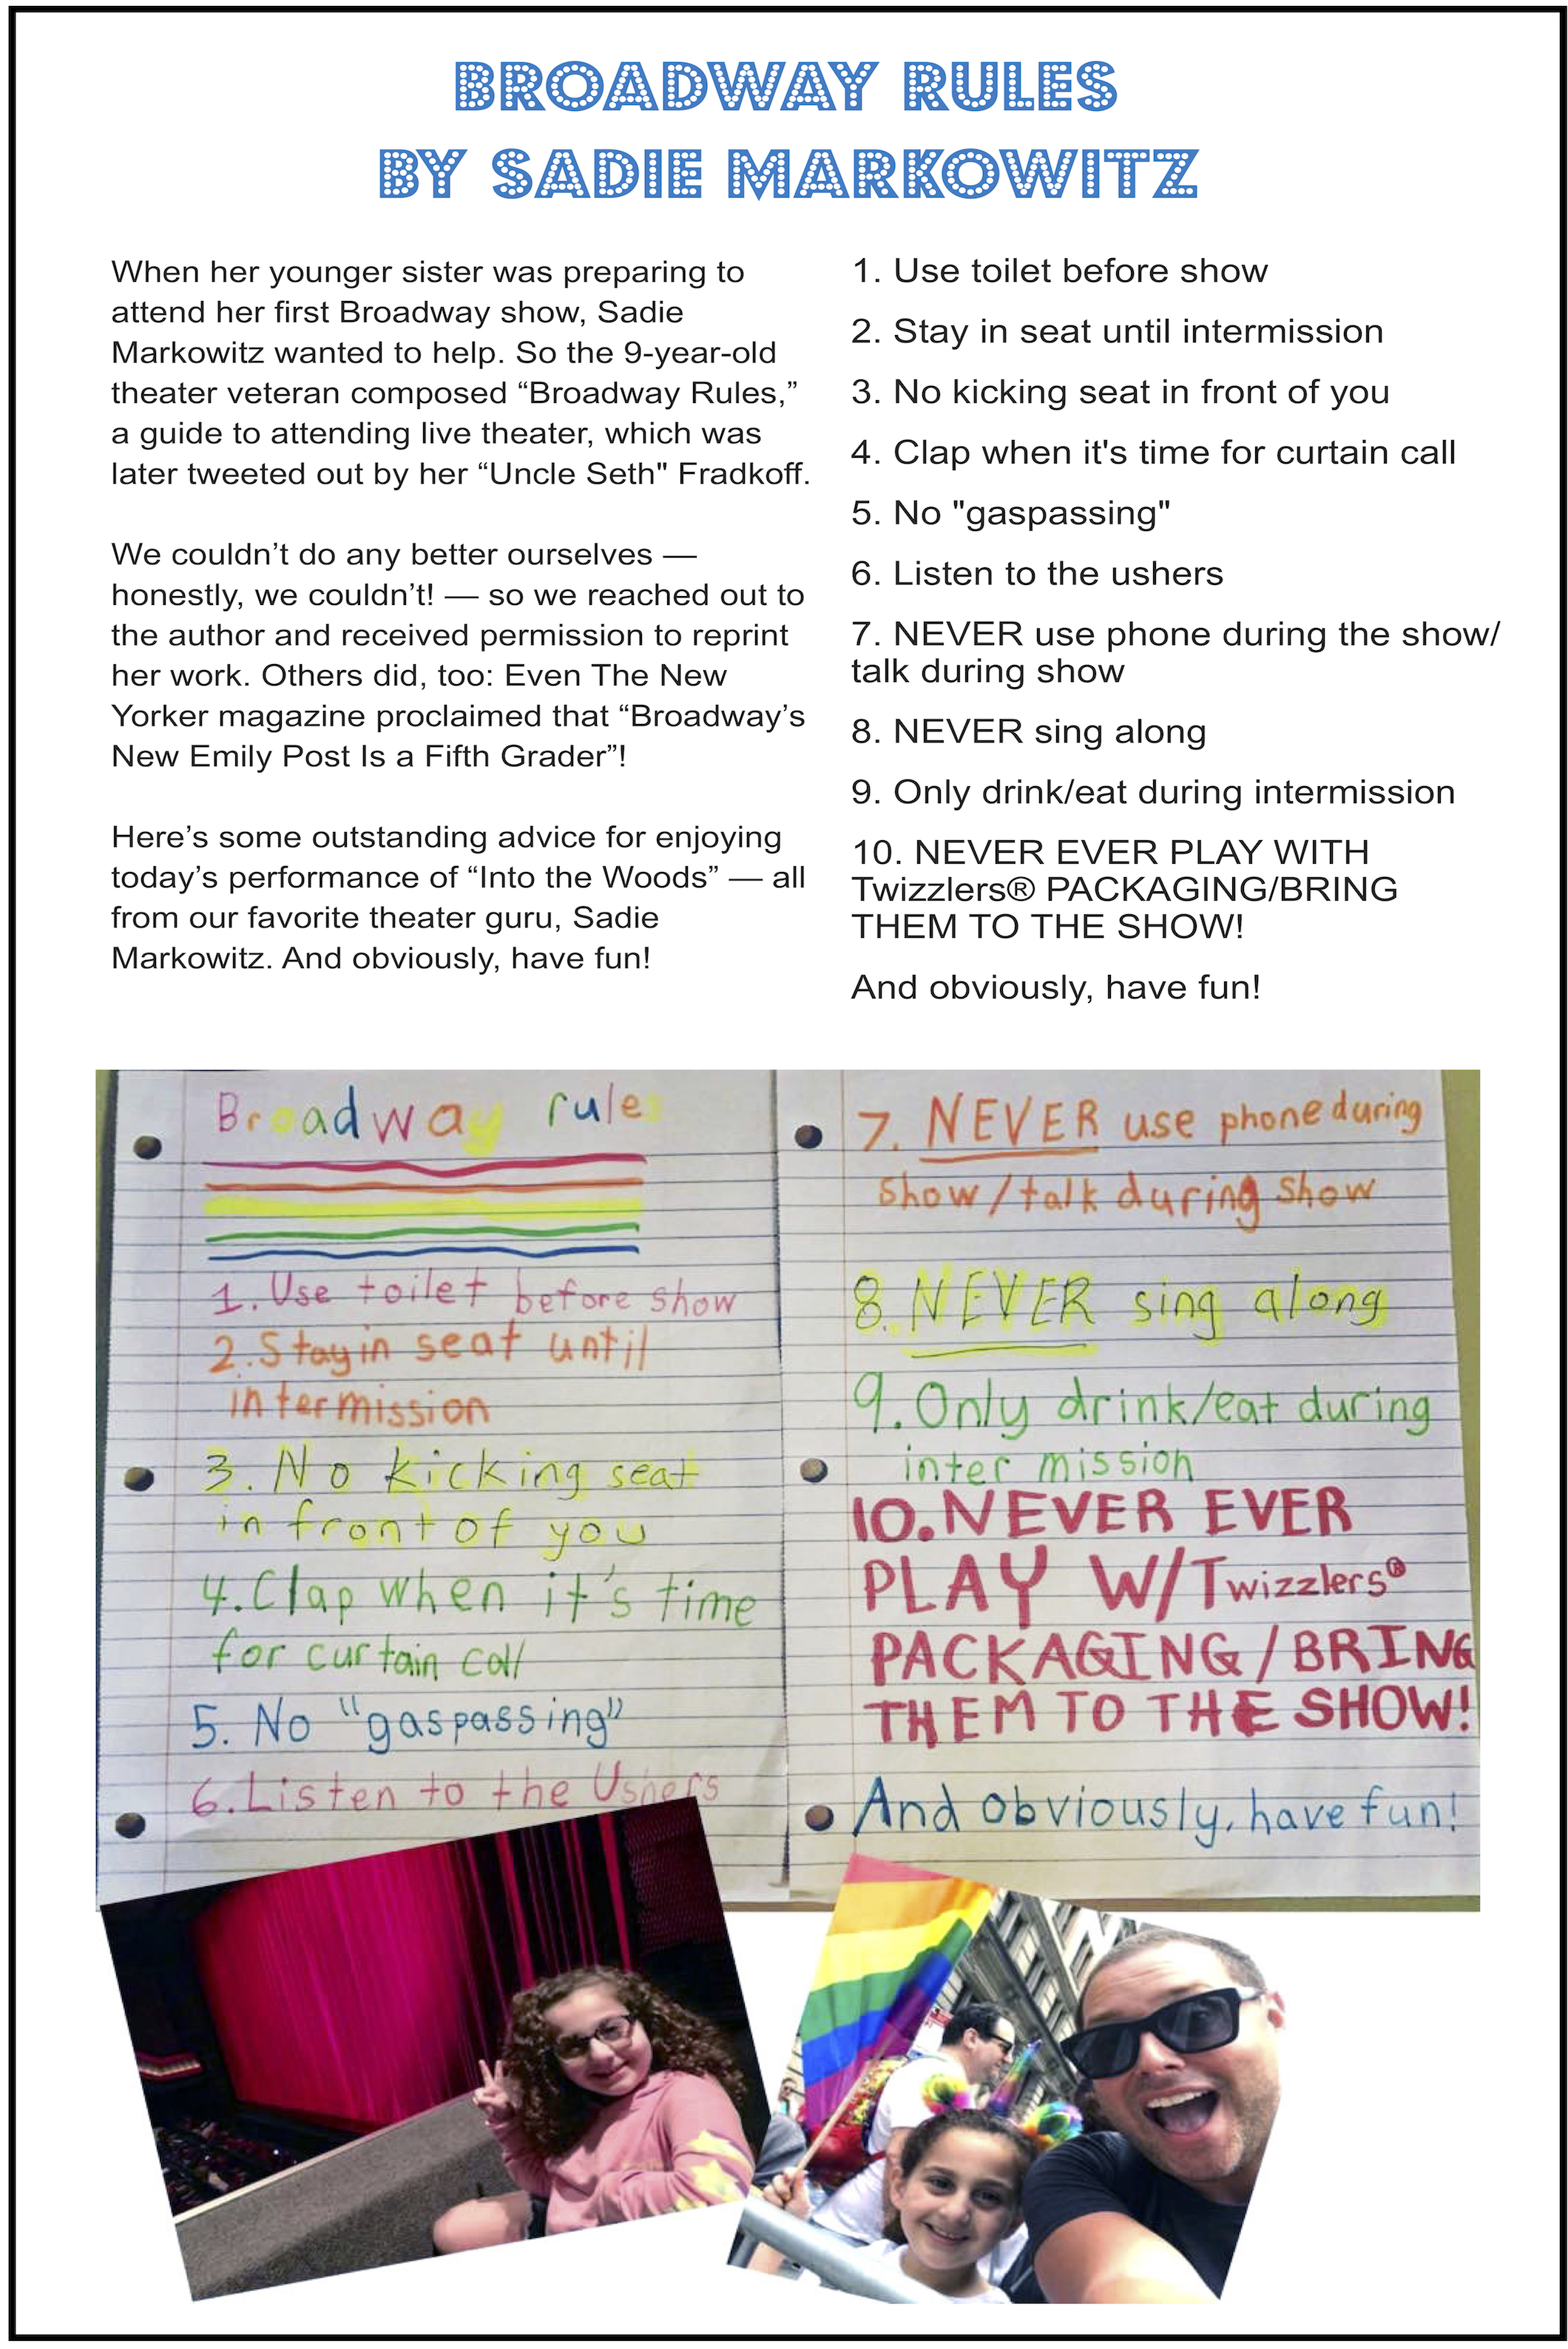 BROADWAY RULES
BY SADIE MARKOWITZ
When her younger sister was preparing to
attend her first Broadway show, Sadie
Markowitz wanted to help. So the 9-year-old
theater veteran composed “Broadway Rules,”
a guide to attending live theater, which was
later tweeted out by her “Uncle Seth" Fradkoff.
We couldn’t do any better ourselves —
honestly, we couldn’t! — so we reached out to
the author and received permission to reprint
her work. Others did, too: Even The New
Yorker magazine proclaimed that “Broadway’s
New Emily Post Is a Fifth Grader”!
Here’s some outstanding advice for enjoying
today’s performance of “Into the Woods” — all
from our favorite theater guru, Sadie
Markowitz. And obviously, have fun!
1. Use toilet before show
2. Stay in seat until intermission
3. No kicking seat in front of you
4. Clap when it's time for curtain call
5. No "gaspassing"
6. Listen to the ushers
7. NEVER use phone during the show/
talk during show
8. NEVER sing along
9. Only drink/eat during intermission
10. NEVER EVER PLAY WITH
Twizzlers® PACKAGING/BRING
THEM TO THE SHOW!
And obviously, have fun!
Broadway rules
1. Use toilet before show
2. Stay in seat until
intermission
3. No kicking seat
in front of you
4. Clap when it's time
for curtain call
5. No "gaspassing"
6. Listen to the Ushers
7. NEVER use phone during
show/talk during show
8. NEVER sing along
9. Only drink/eat during
inter mission
10. NEVER EVER
PLAY W/Twizzlers®
PACKAGING/BRING
THEM TO THE SHOW!
And obviously, have fun!